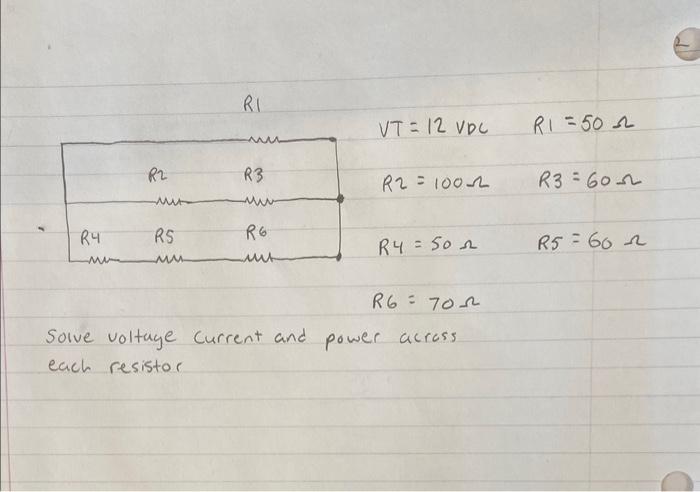 2
R1
VT = 12 VDC R1 = 50 Ω
R2 R3
R2 = 100 Ω R3 = 60 Ω
R4 R5 R6
R4 = 50 Ω R5 = 60 Ω
R6 = 70 Ω
Solve voltage current and power across
each resistor